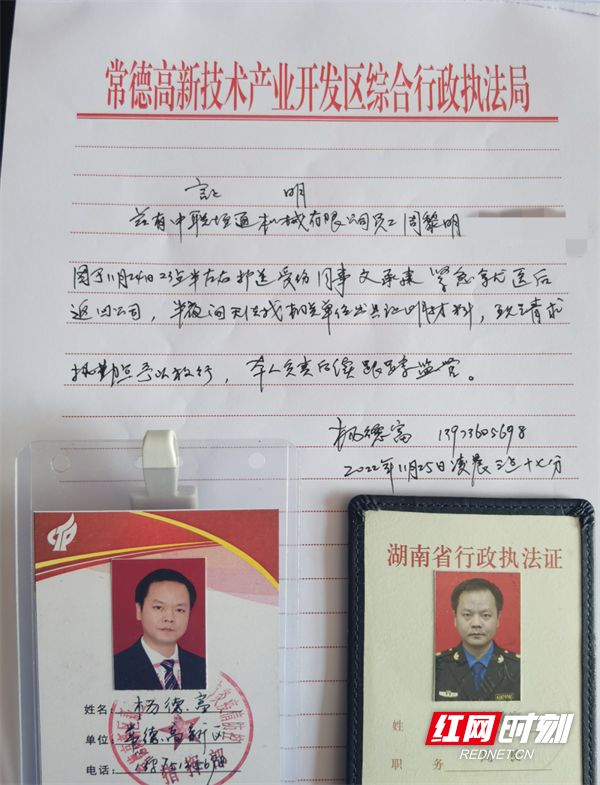 常德高新技术产业开发区综合行政执法局
证 明
兹有中联恒通机械有限公司员工周黎明
因于11月24日23点半左右护送受伤同事文承来紧急就医后
返回公司，半夜间无法找相关单位出具证明材料，现请求
执勤点予以放行，本人负责后续跟踪监管。
杨德富 13973605698
2022年11月25日凌晨三点十七分
姓名 杨德富
单位 常德高新区
电话
指挥部
湖南省行政执法证
姓
职 务
红网时刻
REDNET.CN